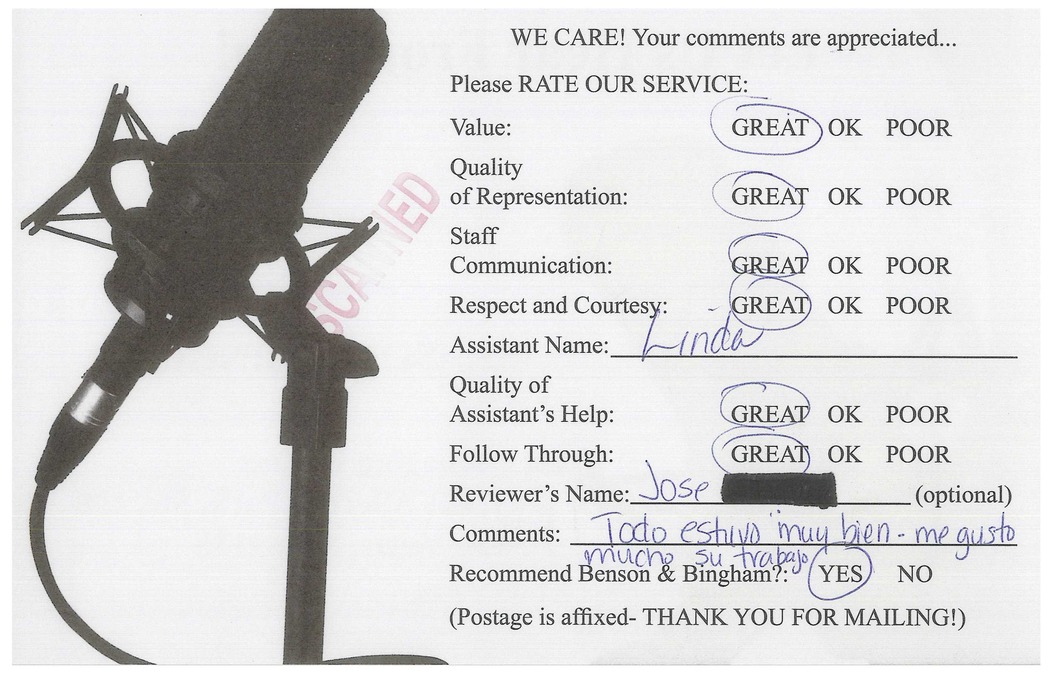 WE CARE! Your comments are appreciated...
Please RATE OUR SERVICE:
Value: GREAT OK POOR
Quality
of Representation: GREAT OK POOR
Staff
Communication: GREAT OK POOR
Respect and Courtesy: GREAT OK POOR
Assistant Name: Linda
Quality of
Assistant's Help: GREAT OK POOR
Follow Through: GREAT OK POOR
Reviewer's Name: Jose (optional)
Comments: Todo estuvo muy bien - me gusto
mucho su trabajo
Recommend Benson & Bingham?: YES NO
(Postage is affixed- THANK YOU FOR MAILING!)
SCANNED